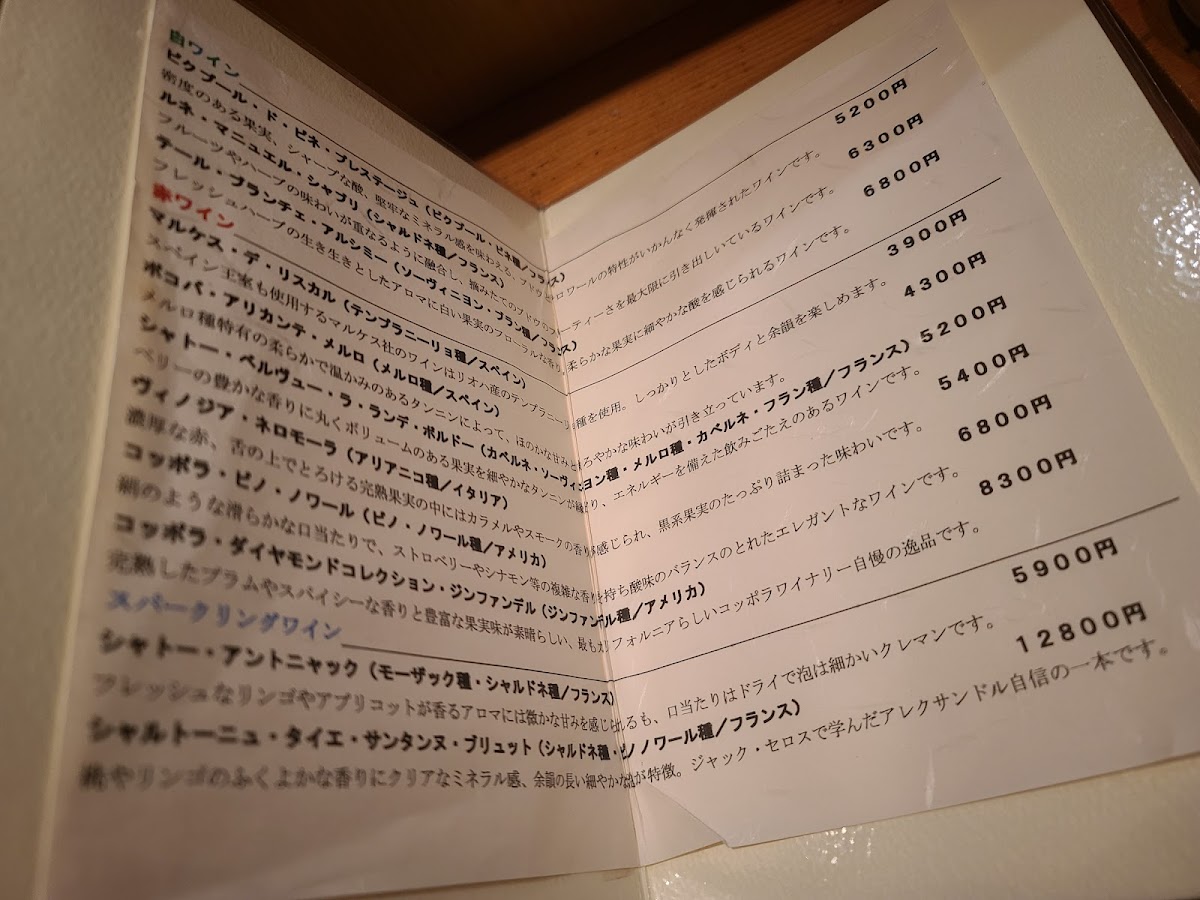 白ワイン
ピクプール・ド・ピネ・プレステージュ（ピクプール・ピネ種／フランス） 5200円
密度のある果実、シャープな酸、堅牢なミネラル感を味わえる、ブドウとロワールの特性がいかんなく発揮されたワインです。
ルネ・マニュエル・シャブリ（シャルドネ種/フランス） 6300円
フルーツやハーブの味わいが重なるように融合し、摘みたてのブドウのフルーティーさを最大限に引き出しているワインです。
テール・ブランチェ・アルシミー（ソーヴィニヨン・ブラン種/フランス） 6800円
フレッシュハーブの生き生きとしたアロマに白い果実のフローラルな香り、柔らかな果実に細やかな酸を感じられるワインです。
赤ワイン
マルケス・デ・リスカル（テンプラニーリョ種/スペイン） 3900円
スペイン王室も使用するマルケス社のワインはリオハ産のテンプラニーニョ種を使用。しっかりとしたボディと余韻を楽しめます。
ポコパ・アリカンテ・メルロ（メルロ種/スペイン） 4300円
メルロ種特有の柔らかで温かみのあるタンニンによって、ほのかな甘みとまろやかな味わいが引き立っています。
シャトー・ベルヴュー・ラ・ランデ・ボルドー（カベルネ・ソーヴィニヨン種・メルロ種・カベルネ・フラン種/フランス） 5200円
ベリーの豊かな香りに丸くボリュームのある果実を細やかなタンニンが縁どり、エネルギーを備えた飲みごたえのあるワインです。
ヴィノジア・ネロモーラ（アリアニコ種/イタリア） 5400円
濃厚な赤、舌の上でとろける完熟果実の中にはカラメルやスモークの香りが感じられ、黒系果実のたっぷり詰まった味わいです。
コッポラ・ピノ・ノワール（ピノ・ノワール種/アメリカ） 6800円
絹のような滑らかな口当たりで、ストロベリーやシナモン等の複雑な香りを持ち酸味のバランスのとれたエレガントなワインです。
コッポラ・ダイヤモンドコレクション・ジンファンデル（ジンファンデル種/アメリカ） 8300円
完熟したプラムやスパイシーな香りと豊富な果実味が素晴らしい、最もカリフォルニアらしいコッポラワイナリー自慢の逸品です。
スパークリングワイン
シャトー・アントニャック（モーザック種・シャルドネ種/フランス） 5900円
フレッシュなリンゴやアプリコットが香るアロマには微かな甘みを感じられるも、口当たりはドライで泡は細かいクレマンです。
シャルトーニュ・タイエ・サンタンヌ・ブリュット（シャルドネ種・ピノ ノワール種/フランス） 12800円
桃やリンゴのふくよかな香りにクリアなミネラル感、余韻の長い細やかな泡が特徴。ジャック・セロスで学んだアレクサンドル自信の一本です。